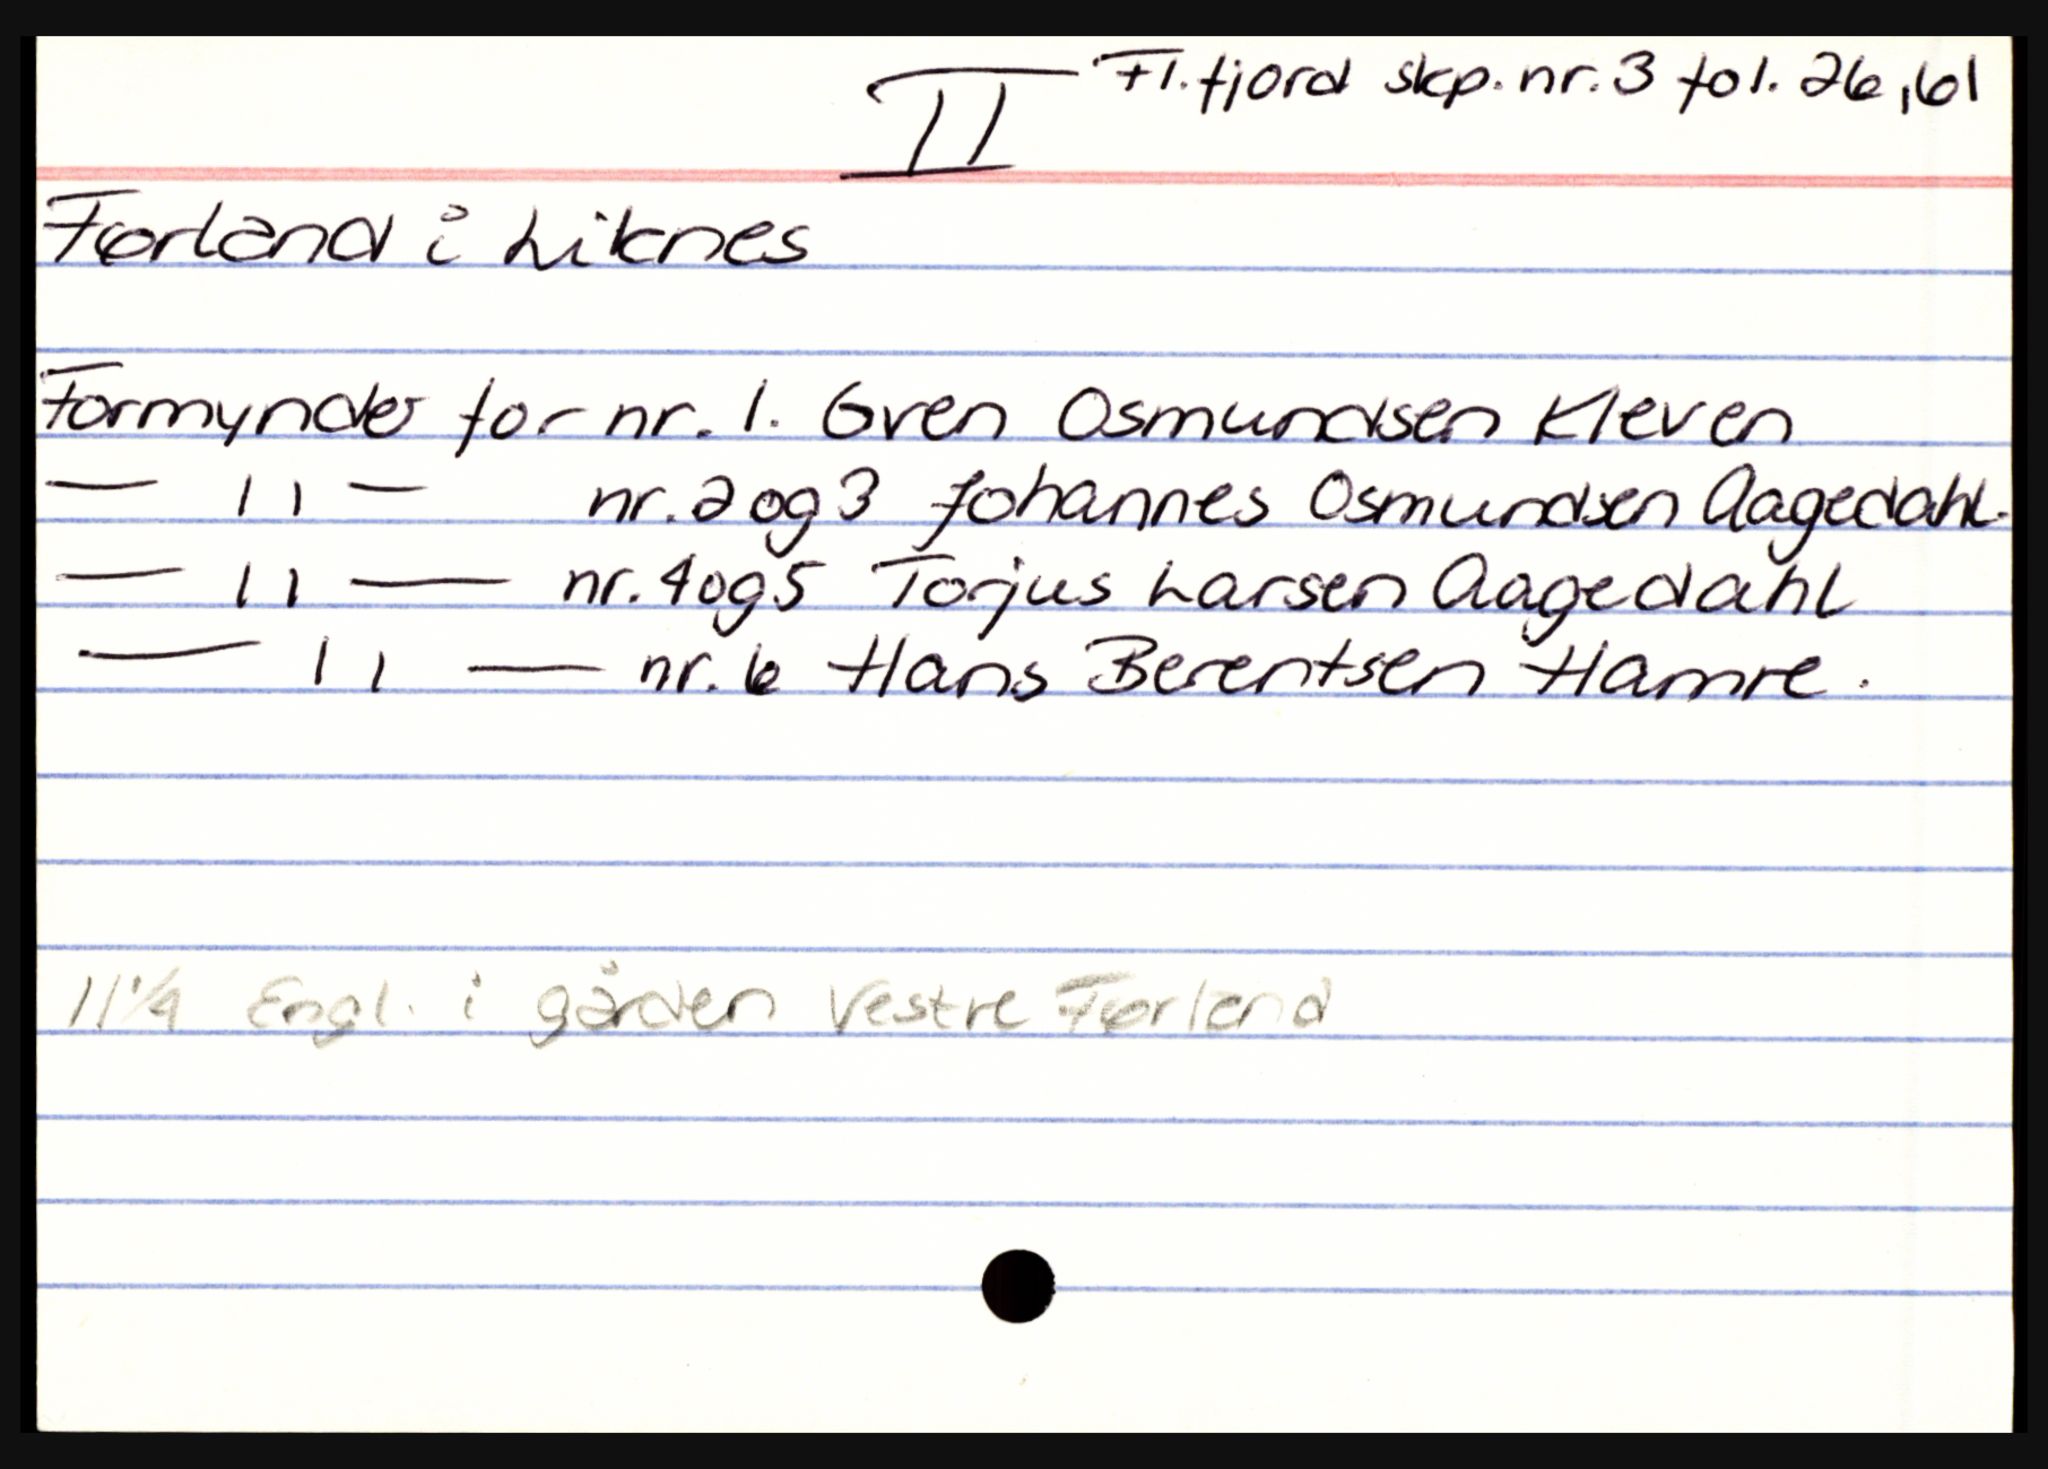 II Fl.fjord skp. nr. 3 fol. 26,61
Førland i Liknes
Formynder for nr. 1. Gven Osmundsen Kleven
— 11 — nr. 2 og 3 Johannes Osmundsen Aagedahl.
— 11 — nr. 4 og 5 Torjus Larsen Aagedahl
— 11 — nr. 6 Hans Berentsen Hamre.
11 1/4 Engl. i gården Vestre Førland